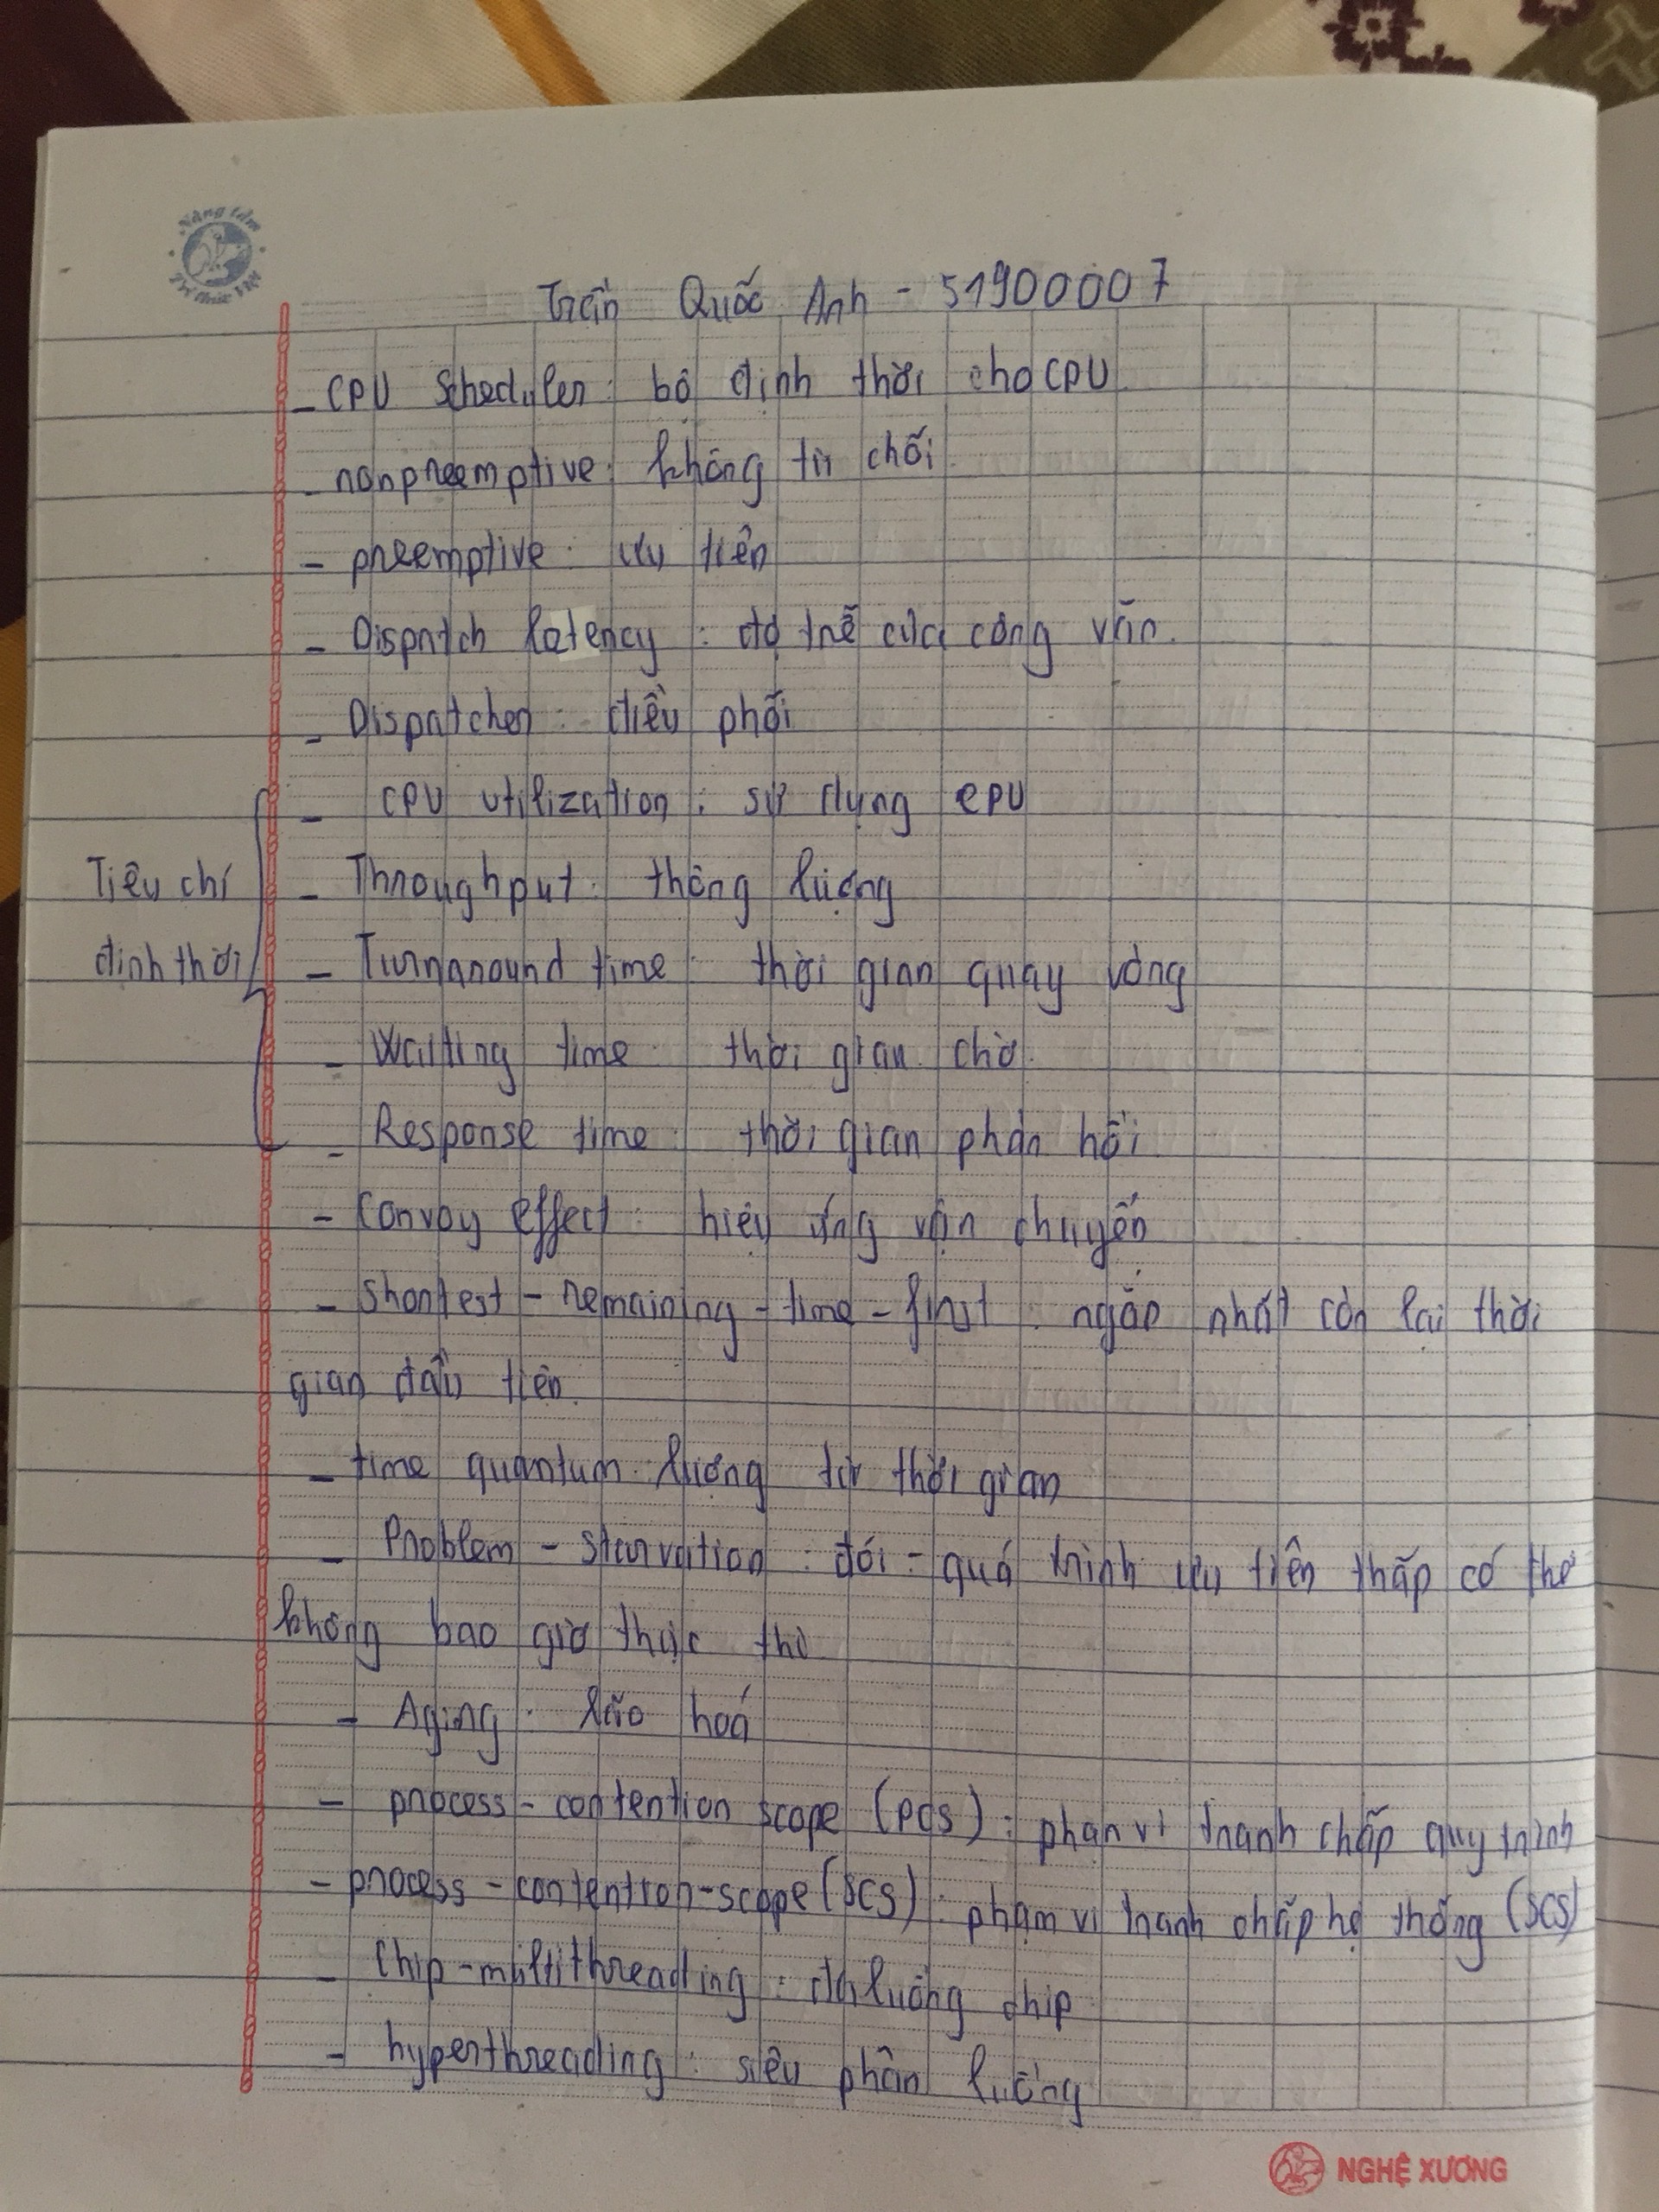 Nâng tầm
Tri thức Việt
Trần Quốc Anh - 51900007
- CPU Scheduler: bộ định thời cho CPU
- nonpreemptive: không từ chối
- preemptive: ưu tiên
- Dispatch latency: độ trễ của công văn.
- Dispatcher: điều phối
- CPU utilization: sử dụng CPU
Tiêu chí
định thời
- Throughput: thông lượng
- Turnaround time: thời gian quay vòng
- Waiting time: thời gian chờ.
- Response time: thời gian phản hồi
- Convoy effect: hiệu ứng vận chuyển
- Shortest - remaining - time - first: ngắn nhất còn lại thời
gian đầu tiên.
- time quantum: lượng tử thời gian
- Problem - Starvation: đói - quá trình ưu tiên thấp có thể
không bao giờ thực thi
- Aging: lão hoá
- process - contention scope (PCS): phạm vi tranh chấp quy trình
- process - contention-scope (SCS): phạm vi tranh chấp hệ thống (SCS)
- Chip-multithreading: đa luồng chip
- hyperthreading: siêu phân luồng
NGHỆ XƯƠNG